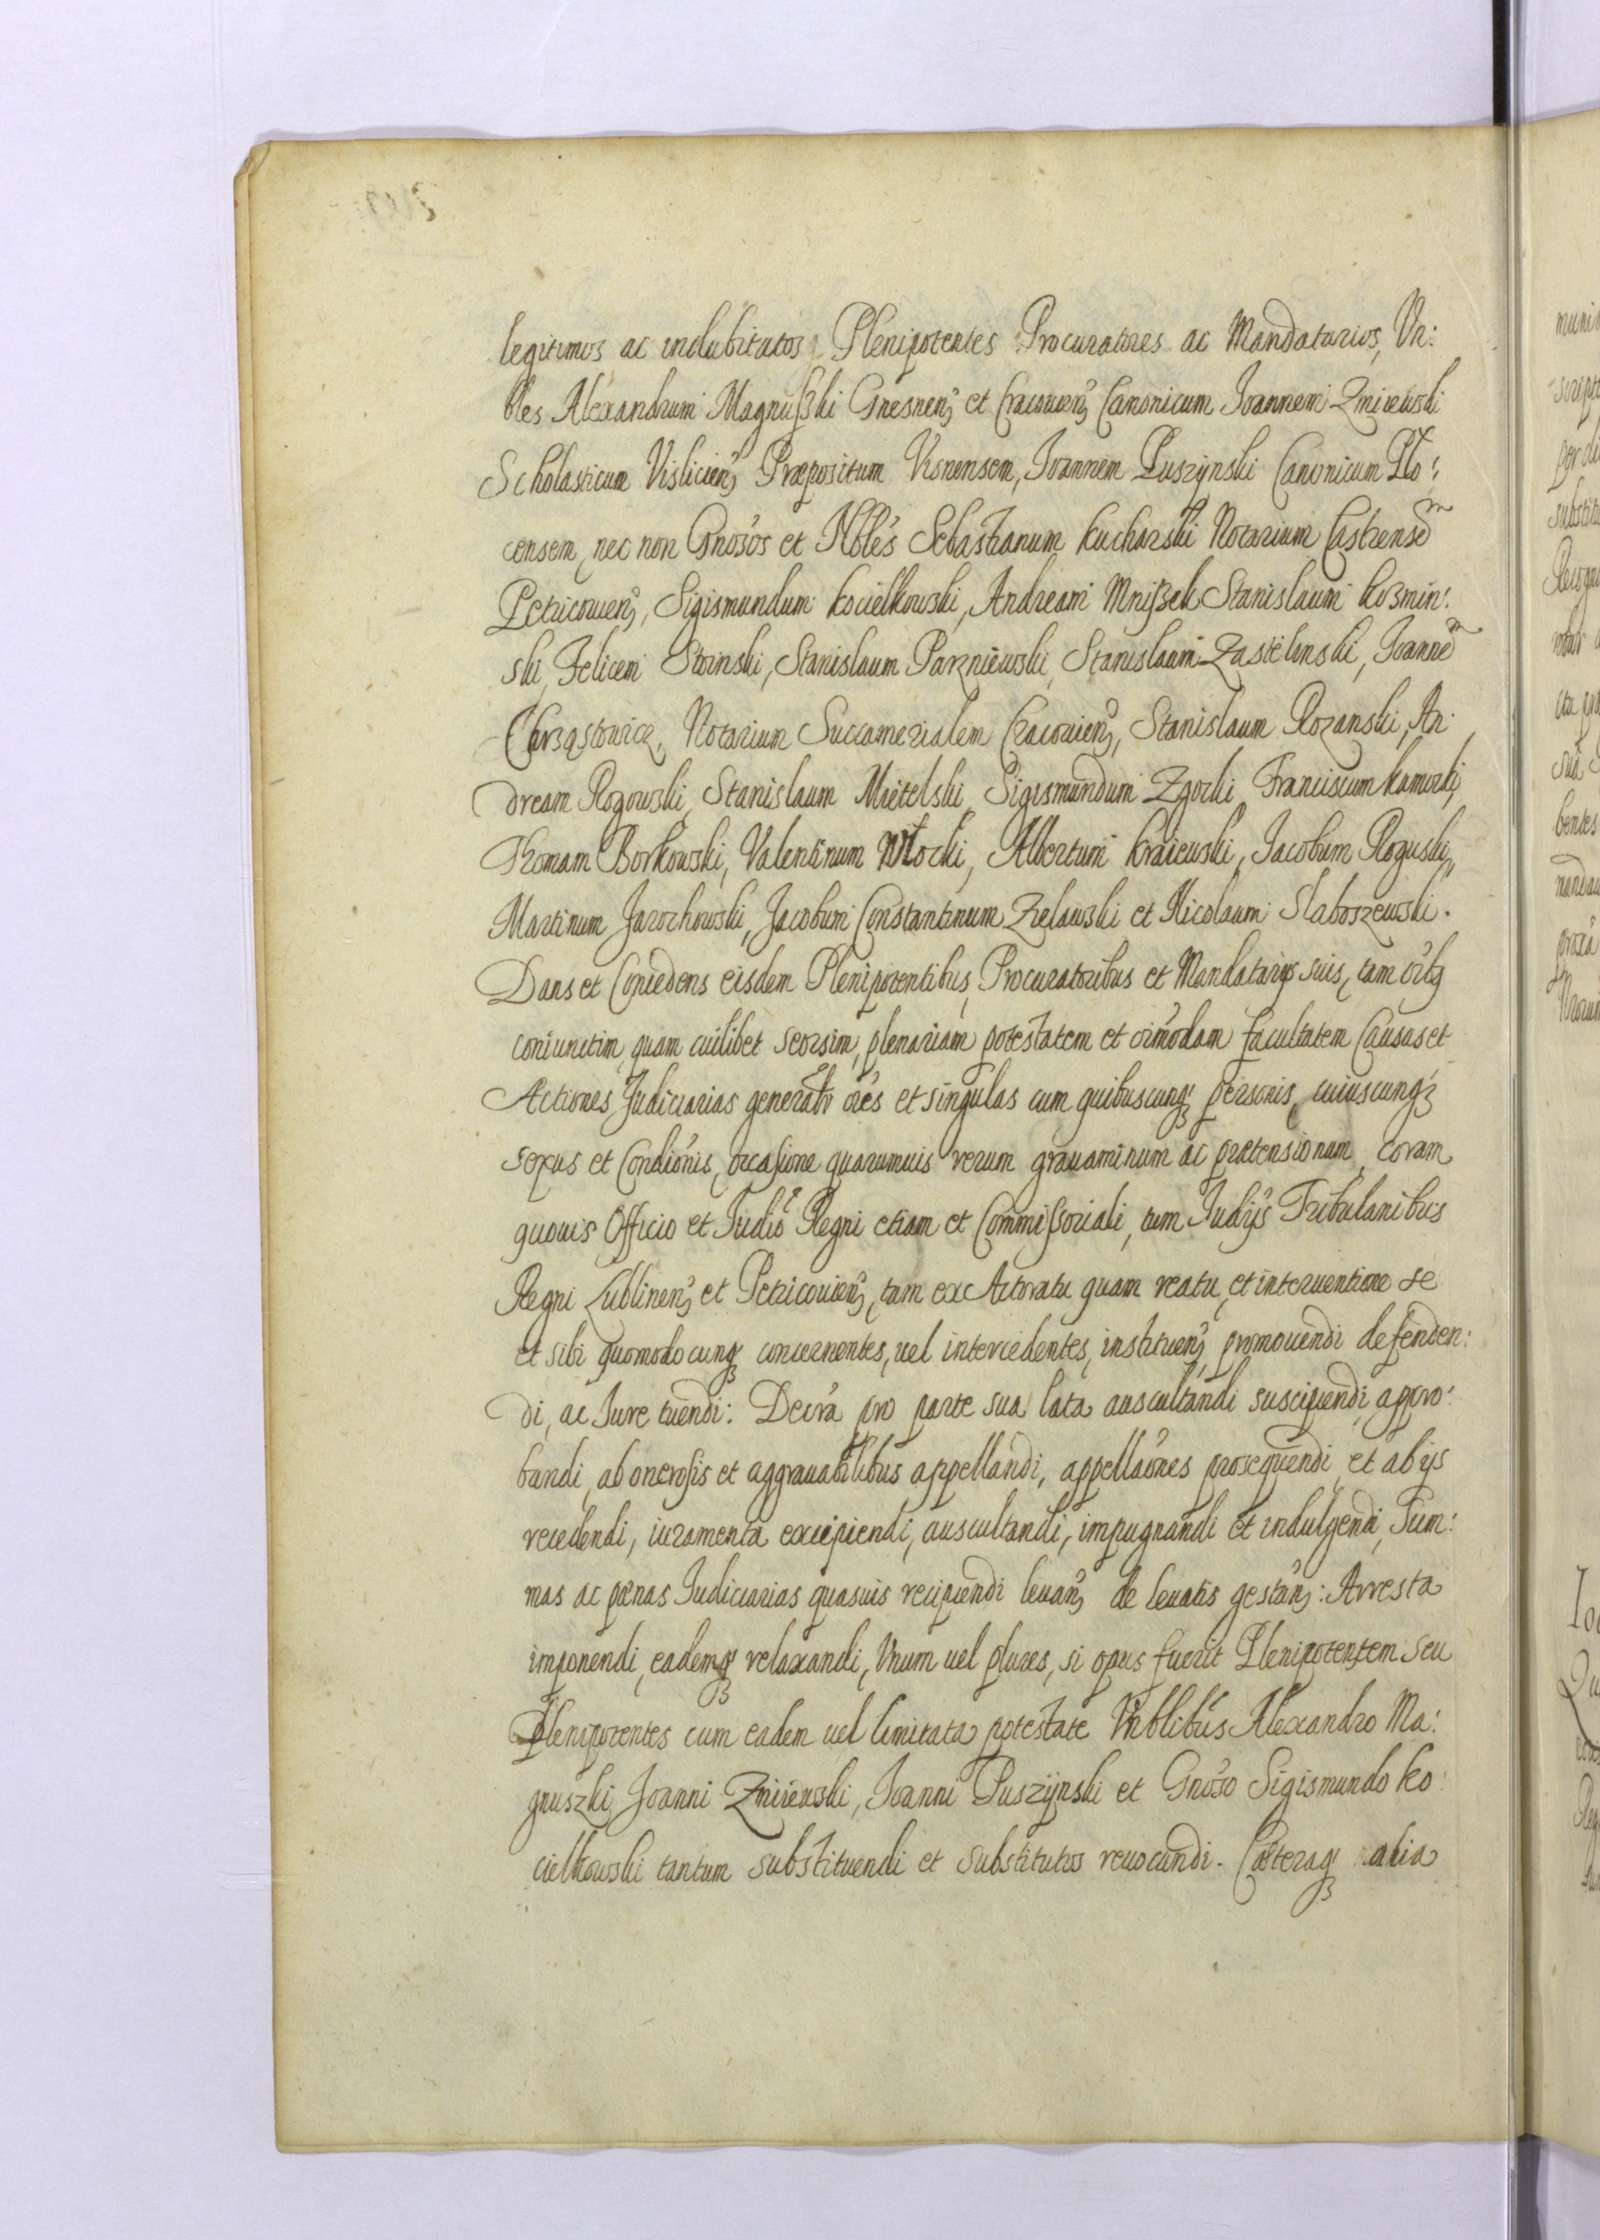 legitimos ac indubitatos Plenipotentes Procuratores ac Mandatarios, Vn:
bles Alexandrum Magnuszki Gnesnen; et Cracovien; Canonicum Joannem Zmiiewski
Scholasticum Vislicien; Præpositum Visnensem, Joannem Puszynski Canonicum Plo:
censem, nec non Gnosos et Nbles Sebastianum Kucharski Notarium Castrensem
Petricovien;, Sigismundum Kocielkowski, Andream Mniszek Stanislaum Kozmin:
ski, Felicem Stoinski, Stanislaum Parzniewski, Stanislaum Zastelinski, Joannem
Chrząstowicz, Notarium Succamerialem Cracovien;, Stanislaum Rozanski, An:
dream Rogowski, Stanislaum Mietelski, Sigismundum Zgorki, Franciscum Kamocki,
Thomam Borkowski, Valentinum Włocki, Albertum Kraiewski, Jacobum Roguski,
Martinum Jarochowski, Jacobum Constantinum Zielawski et Nicolaum Slaboszewski.
Dans et Concedens eisdem Plenipotentibus, Procuratoribus et Mandatarijs suis, tam oibq
coniunctim, quam cuilibet seorsim, plenariam potestatem et oimodam facultatem Causas et
Actiones Judiciarias generalr oes et singulas cum quibuscunq; personis, cuiuscunq;
sexus et Condionis, occasione quarumuis rerum grauaminum ac prætensionum, coram
quouis Officio et Judio Regni etiam et Commissoriali, tum Judijs Tribulanibus
Regni Lublinen; et Petricovien;, tam ex Actoratu quam reatu, et interuentione se
et sibi quomodocunq; concernentes, uel intercedentes, instituen; promouendi defenden:
di, ac Jure tuendi: Decra pro parte sua lata auscultandi suscipiendi, appro:
bandi, ab onerosis et aggrauabilibus appellandi, appellaones prosequendi, et ab ijs
recedendi, iuramenta excipiendi, auscultandi, impugnandi et indulgendi, Sum:
mas ac pænas Judiciarias quasuis recipiendi leuan; de leuatis gestan;: Arresta
imponendi, eademq; relaxandi, Vnum uel plures, si opus fuerit Plenipotentem seu
Plenipotentes cum eadem uel limitata potestate Vnblibus Alexandro Ma:
gnuszki, Joanni Zmiiewski, Joanni Puszijnski et Gnoso Sigismundo Ko:
cielkowski tantum substituendi et substitutos reuocandi. Cæteraq; alia